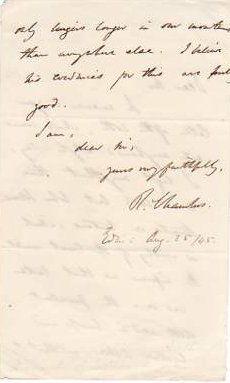 only lingers longer in our mountains
than anywhere else. I believe
his evidences for this are fully
good.
I am,
dear Sir,
yours very faithfully,
R. Chambers.
Edinr Aug. 25/45.